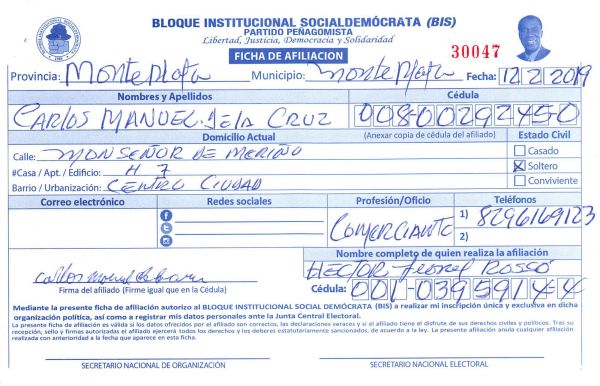 BLOQUE INSTITUCIONAL SOCIALDEMÓCRATA (BIS)
PARTIDO PEÑAGOMISTA
Libertad, Justicia, Democracia y Solidaridad
FICHA DE AFILIACION
30047
Provincia: Monte Plata Municipio: Monte Plata Fecha: 12/2/2019
Nombres y Apellidos Cédula
CARLOS MANUEL DE LA CRUZ 008-0029245-0
Domicilio Actual (Anexar copia de cédula del afiliado) Estado Civil
Calle: MONSEÑOR DE MERIÑO Casado
#Casa / Apt. / Edificio: # 7 X Soltero
Barrio / Urbanización: CENTRO CIUDAD Conviviente
Correo electrónico Redes sociales Profesión/Oficio Teléfonos
COMERCIANTE 1) 8296169123
2)
Nombre completo de quien realiza la afiliación
HECTOR Rossó
Firma del afiliado (Firme igual que en la Cédula) Cédula: 001-0395914-4
Mediante la presente ficha de afiliación autorizo al BLOQUE INSTITUCIONAL SOCIAL DEMÓCRATA (BIS) a realizar mi inscripción única y exclusiva en dicha
organización política, así como a registrar mis datos personales ante la Junta Central Electoral.
La presente ficha de afiliación es válida si los datos ofrecidos por el afiliado son correctos, las declaraciones veraces y si el afiliado tiene el disfrute de sus derechos civiles y políticos. Tras su
recepción, sello y firmas autorizadas el afiliado ejercerá todos los derechos y los deberes estatutariamente sancionados, de acuerdo a la ley. La presente afiliación anula cualquier afiliación
realizada con anterioridad a la fecha que aparece en esta ficha.
SECRETARIO NACIONAL DE ORGANIZACIÓN SECRETARIO NACIONAL ELECTORAL